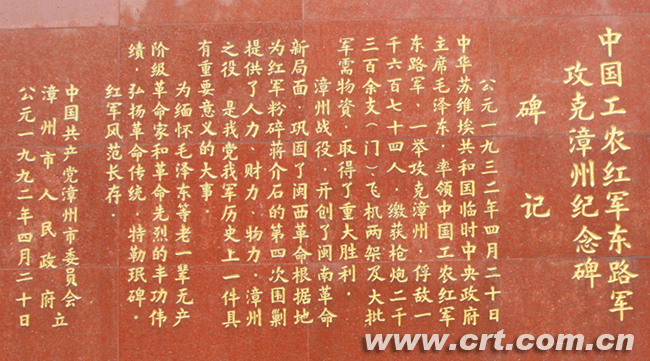 中国工农红军东路军
攻克漳州纪念碑
碑记
公元一九三二年四月二十日
中华苏维埃共和国临时中央政府
主席毛泽东,率领中国工农红军
东路军,一举攻克漳州,俘敌一
千六百七十四人,缴获枪炮二千
三百余支(门)飞机两架及大批
军需物资,取得了重大胜利.
漳州战役,开创了闽南革命
新局面,巩固了闽西革命根据地
为红军粉碎蒋介石的第四次围剿
提供了人力,财力,物力,漳州
之役 是我党我军历史上一件具
有重要意义的大事.
为缅怀毛泽东等老一辈无产
阶级革命家和革命先烈的丰功伟
绩,弘扬革命传统,特勒珉碑,
红军风范长存.
中国共产党漳州市委员会立
漳州市人民政府
公元一九九二年四月二十日
www.crt.com.cn